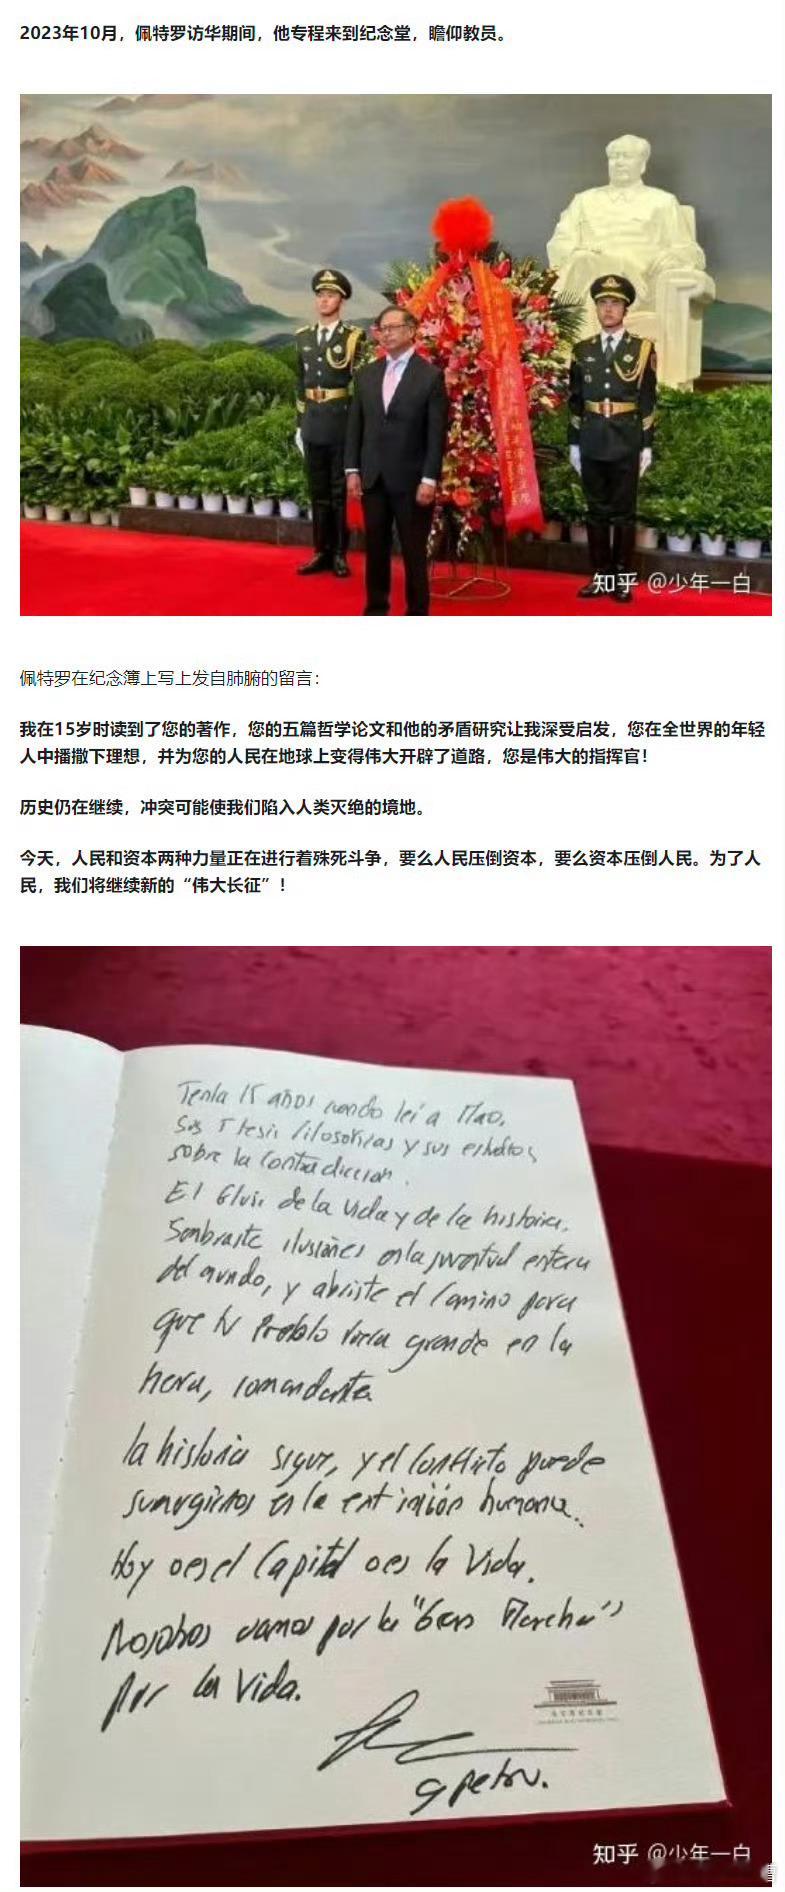 2023年10月，佩特罗访华期间，他专程来到纪念堂，瞻仰教员。
知乎 @少年一白
佩特罗在纪念簿上写上发自肺腑的留言：
我在15岁时读到了您的著作，您的五篇哲学论文和他的矛盾研究让我深受启发，您在全世界的年轻
人中播撒下理想，并为您的人民在地球上变得伟大开辟了道路，您是伟大的指挥官！
历史仍在继续，冲突可能使我们陷入人类灭绝的境地。
今天，人民和资本两种力量正在进行着殊死斗争，要么人民压倒资本，要么资本压倒人民。为了人
民，我们将继续新的“伟大长征”！
Tenía 15 años cuando leí a Mao.
Sus 5 tesis filosóficas y sus estudios
sobre la contradicción.
El de la vida y de la historia.
Sembraste ilusiones en la juventud entera
del mundo, y abriste el camino para
que tu Pueblo fuera grande en la
comandante
la historia sigue, y el conflicto puede
sumergirnos en la extinción humana.
Hoy o es el Capital o es la Vida.
Nosotros vamos por la "Gran Marcha"
por la Vida.
G Petro.
知乎 @少年一白